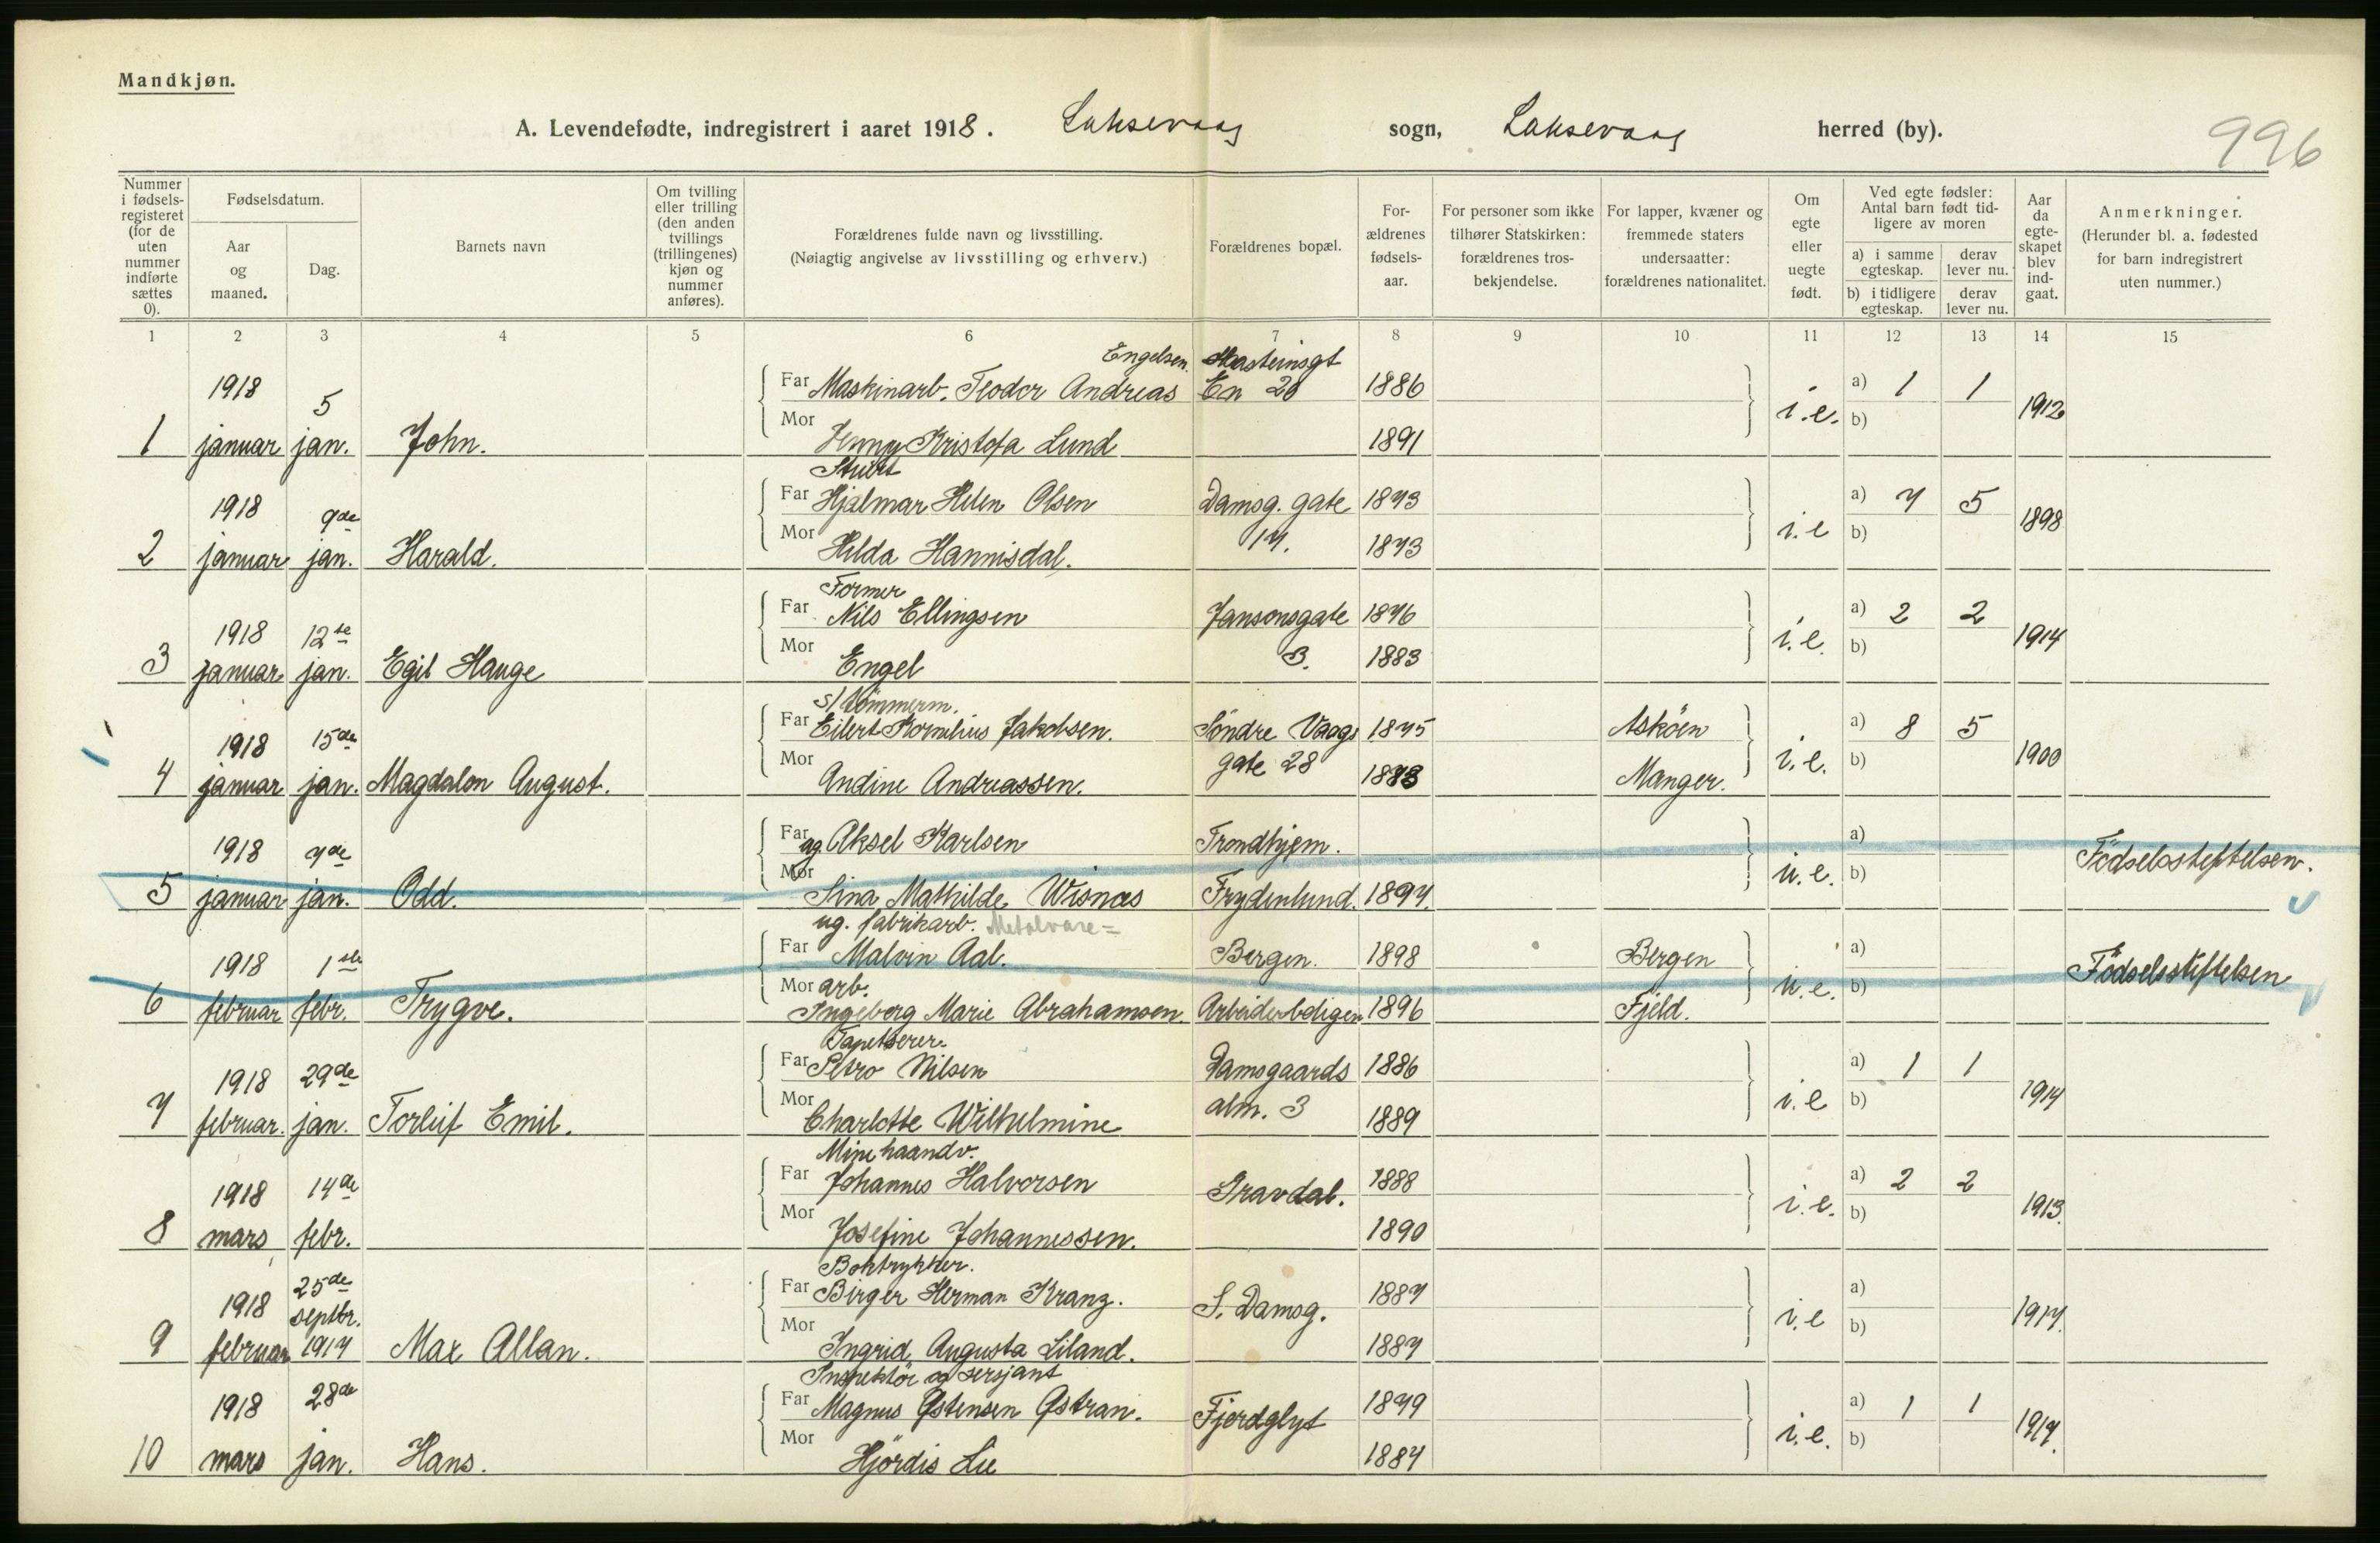 Mandkjøn.
A. Levendefødte, indregistrert i aaret 1918. Laksevaag sogn, Laksevaag herred (by).
996
Nummer i fødselsregisteret (for de uten nummer indførte sættes 0).
Fødselsdatum.
Aar og maaned.
Dag.
Barnets navn
Om tvilling eller trilling (den anden tvillings (trillingenes) kjøn og nummer anføres).
Forældrenes fulde navn og livsstilling.
(Nøiagtig angivelse av livsstilling og erhverv.)
Forældrenes bopæl.
Forældrenes fødselsaar.
For personer som ikke tilhører Statskirken: forældrenes trosbekjendelse.
For lapper, kvæner og fremmede staters undersaatter: forældrenes nationalitet.
Om egte eller uegte født.
Ved egte fødsler: Antal barn født tidligere av moren
a) i samme egteskap. derav lever nu.
b) i tidligere egteskap. derav lever nu.
Aar da egteskapet blev indgaat.
Anmerkninger.
(Herunder bl. a. fødested for barn indregistrert uten nummer.)
1 2 3 4 5 6 7 8 9 10 11 12 13 14 15
Engelsen.
1918 5 Far Maskinarb. Teodor Andreas En 20 1886 a) 1 1
1 januar jan. John. Mor Jenny Kristofa Lund 1891 i.e. b) 1912
1918 9de Far Hjalmar Helen Olsen Damsg. gate 1873 a) 7 5
2 januar jan. Harald. Mor Hilda Hannisdal. 17. 1873 i.e b) 1898
Former
1918 12te Far Nils Ellingsen Jansonsgate 1876 a) 2 2
3 januar jan. Egil Hauge Mor Engel 3. 1883 i.e. b) 1914
s/tömmerm.
1918 15de Far Eilert Kornilius Jakobsen. Söndre Vaags 1875 Asköen a) 8 5
4 januar jan. Magdalon August. Mor Andine Andreassen. gate 28 Manger. i.e. b) 1900
1918 7de Far ug. Aksel Karlsen Trondhjem. a) Födselsstiftelsen.
5 januar jan. Odd. Mor Sina Mathilde Wisnæs Frydenlund. 1897. u.e. b)
ug. fabrikarb. Metalvare=
1918 1ste Far Malvin Aal. Bergen. 1898 Bergen a) Födselsstiftelsen
6 februar febr. Trygve. Mor arb. Ingeborg Marie Abrahamsen. Arbeiderboligen 1896 Fjeld. u.e. b)
Tapetserer.
1918 29de Far Petro Nilsen Damsgaards 1886 a) 1 1
7 februar. jan. Torleif Emil. Mor Charlotte Wilhelmine alm. 3 1889 i.e b) 1914
Minehaandv.
1918 14de Far Johannes Halvorsen Gravdal. 1888 a) 2 2
8 mars febr. Mor Josefine Johannessen. 1890 i.e. b) 1913.
Boktrykker.
1918 25de septbr. Far Birger Herman Kranz. S. Damsg. 1887 a)
9 februar 1917 Max Allan. Mor Ingrid Augusta Liland. 1887 i.e b) 1917.
Inspektör og sersjant
1918 28de Far Magnus Østensen Østran. Fjordglyt 1879 a) 1 1
10 mars jan. Hans. Mor Hjördis Lie 1887 i.e. b)